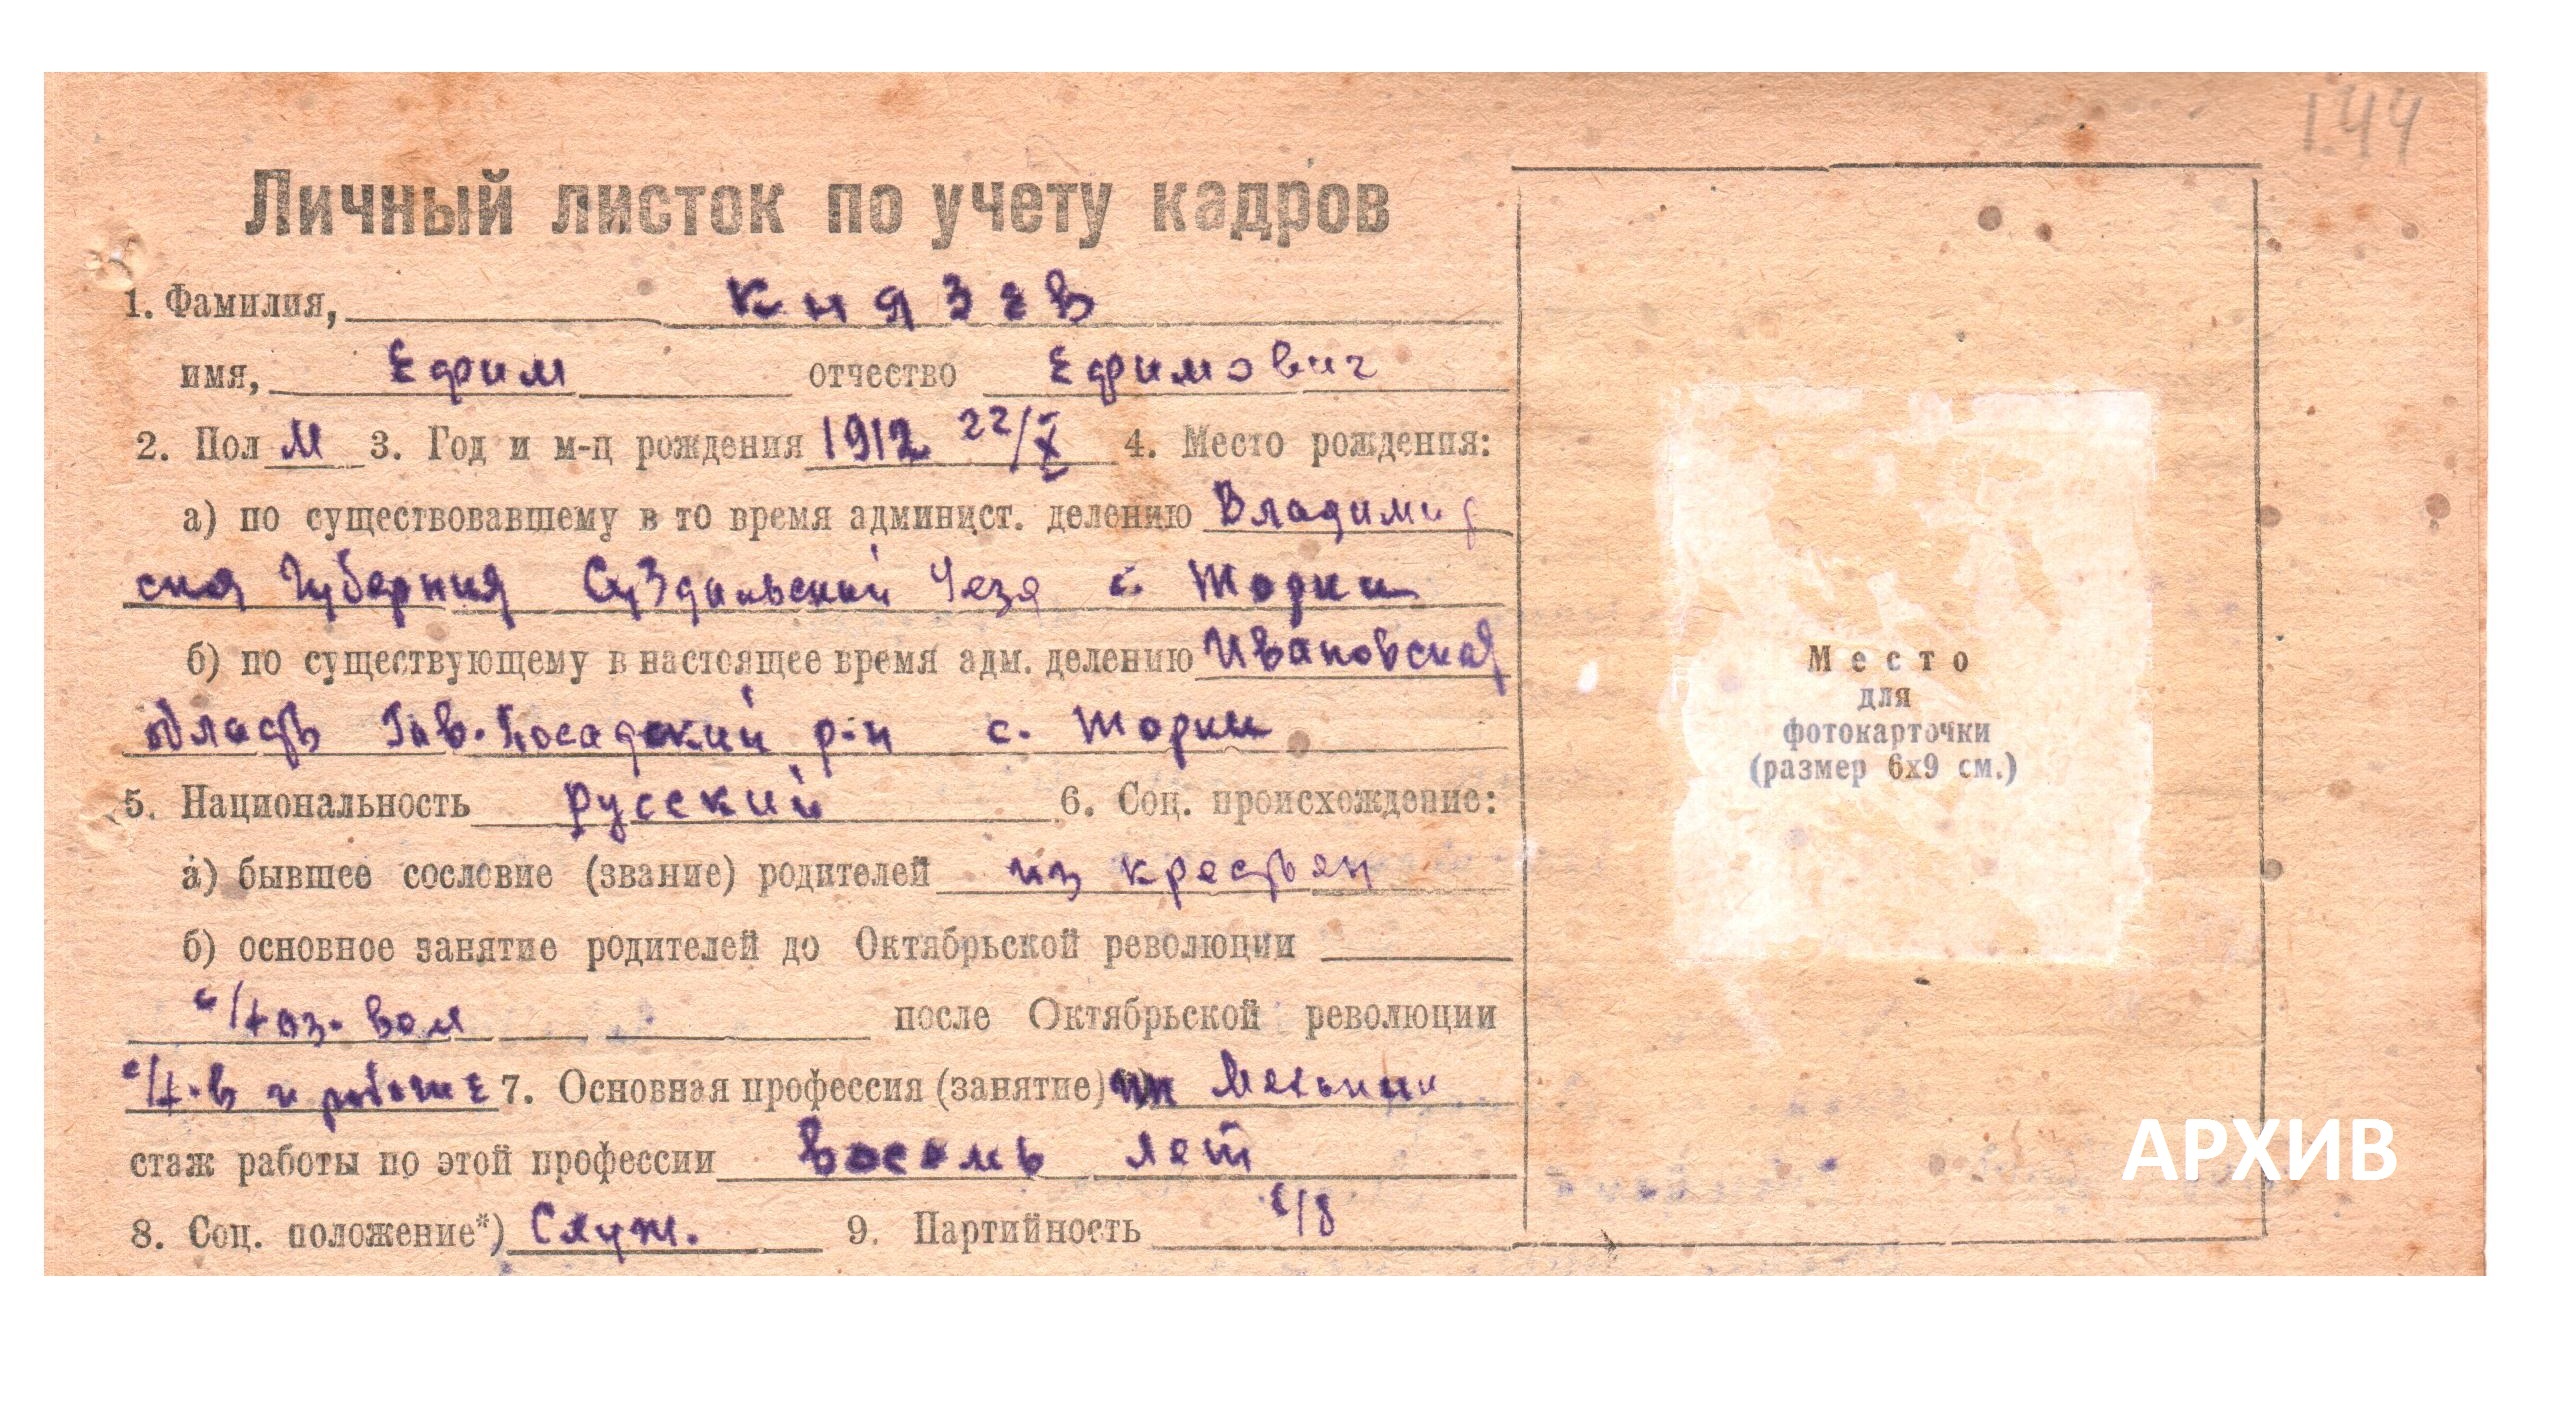 144
Личный листок по учету кадров
1. Фамилия, Князев
имя, Ефим отчество Ефимович
2. Пол М 3. Год и м-ц рождения 1912 22/X 4. Место рождения:
а) по существовавшему в то время админист. делению Владимир
ская Губерния Суздальский Уезд с. Торки
б) по существующему в настоящее время адм. делению Ивановская
область Гав. Посадский р-н с. Торки
5. Национальность русский 6. Соц. происхождение:
а) бывшее сословие (звание) родителей из крестьян
б) основное занятие родителей до Октябрьской революции
с/хоз-вом после Октябрьской революции
с/х-в и 7. Основная профессия (занятие)
стаж работы по этой профессии восемь лет
8. Соц. положение*) Служ. 9. Партийность б/п
Место
для
фотокарточки
(размер 6х9 см.)
АРХИВ